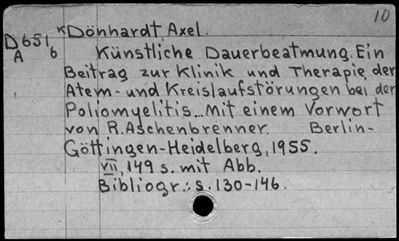 10
D651 *Dönhardt, Axel.
A 6 Künstliche Dauerbeatmung. Ein
Beitrag zur Klinik und Therapie der
Atem- und Kreislaufstörungen bei der
Poliomyelitis... Mit einem Vorwort
von R. Aschenbrenner. Berlin-
Göttingen-Heidelberg, 1955.
VII, 149 s. mit Abb.
Bibliogr.: s. 130-146.